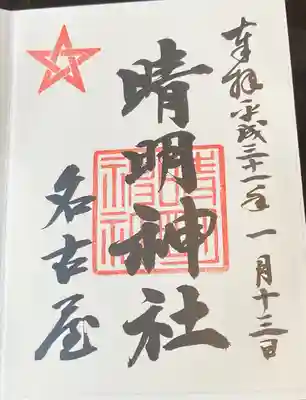 奉拝 平成三十一年 一月十三日
晴明神社
名古屋
晴明
神社